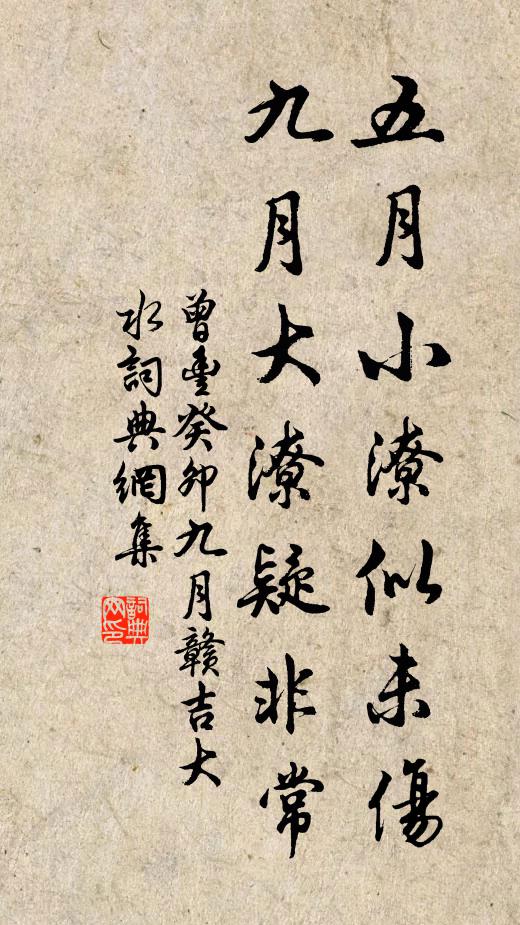 五月小潦似未傷
九月大潦疑非常
曾豐癸卯九月贛吉大
水詞典網集
詞典
网印